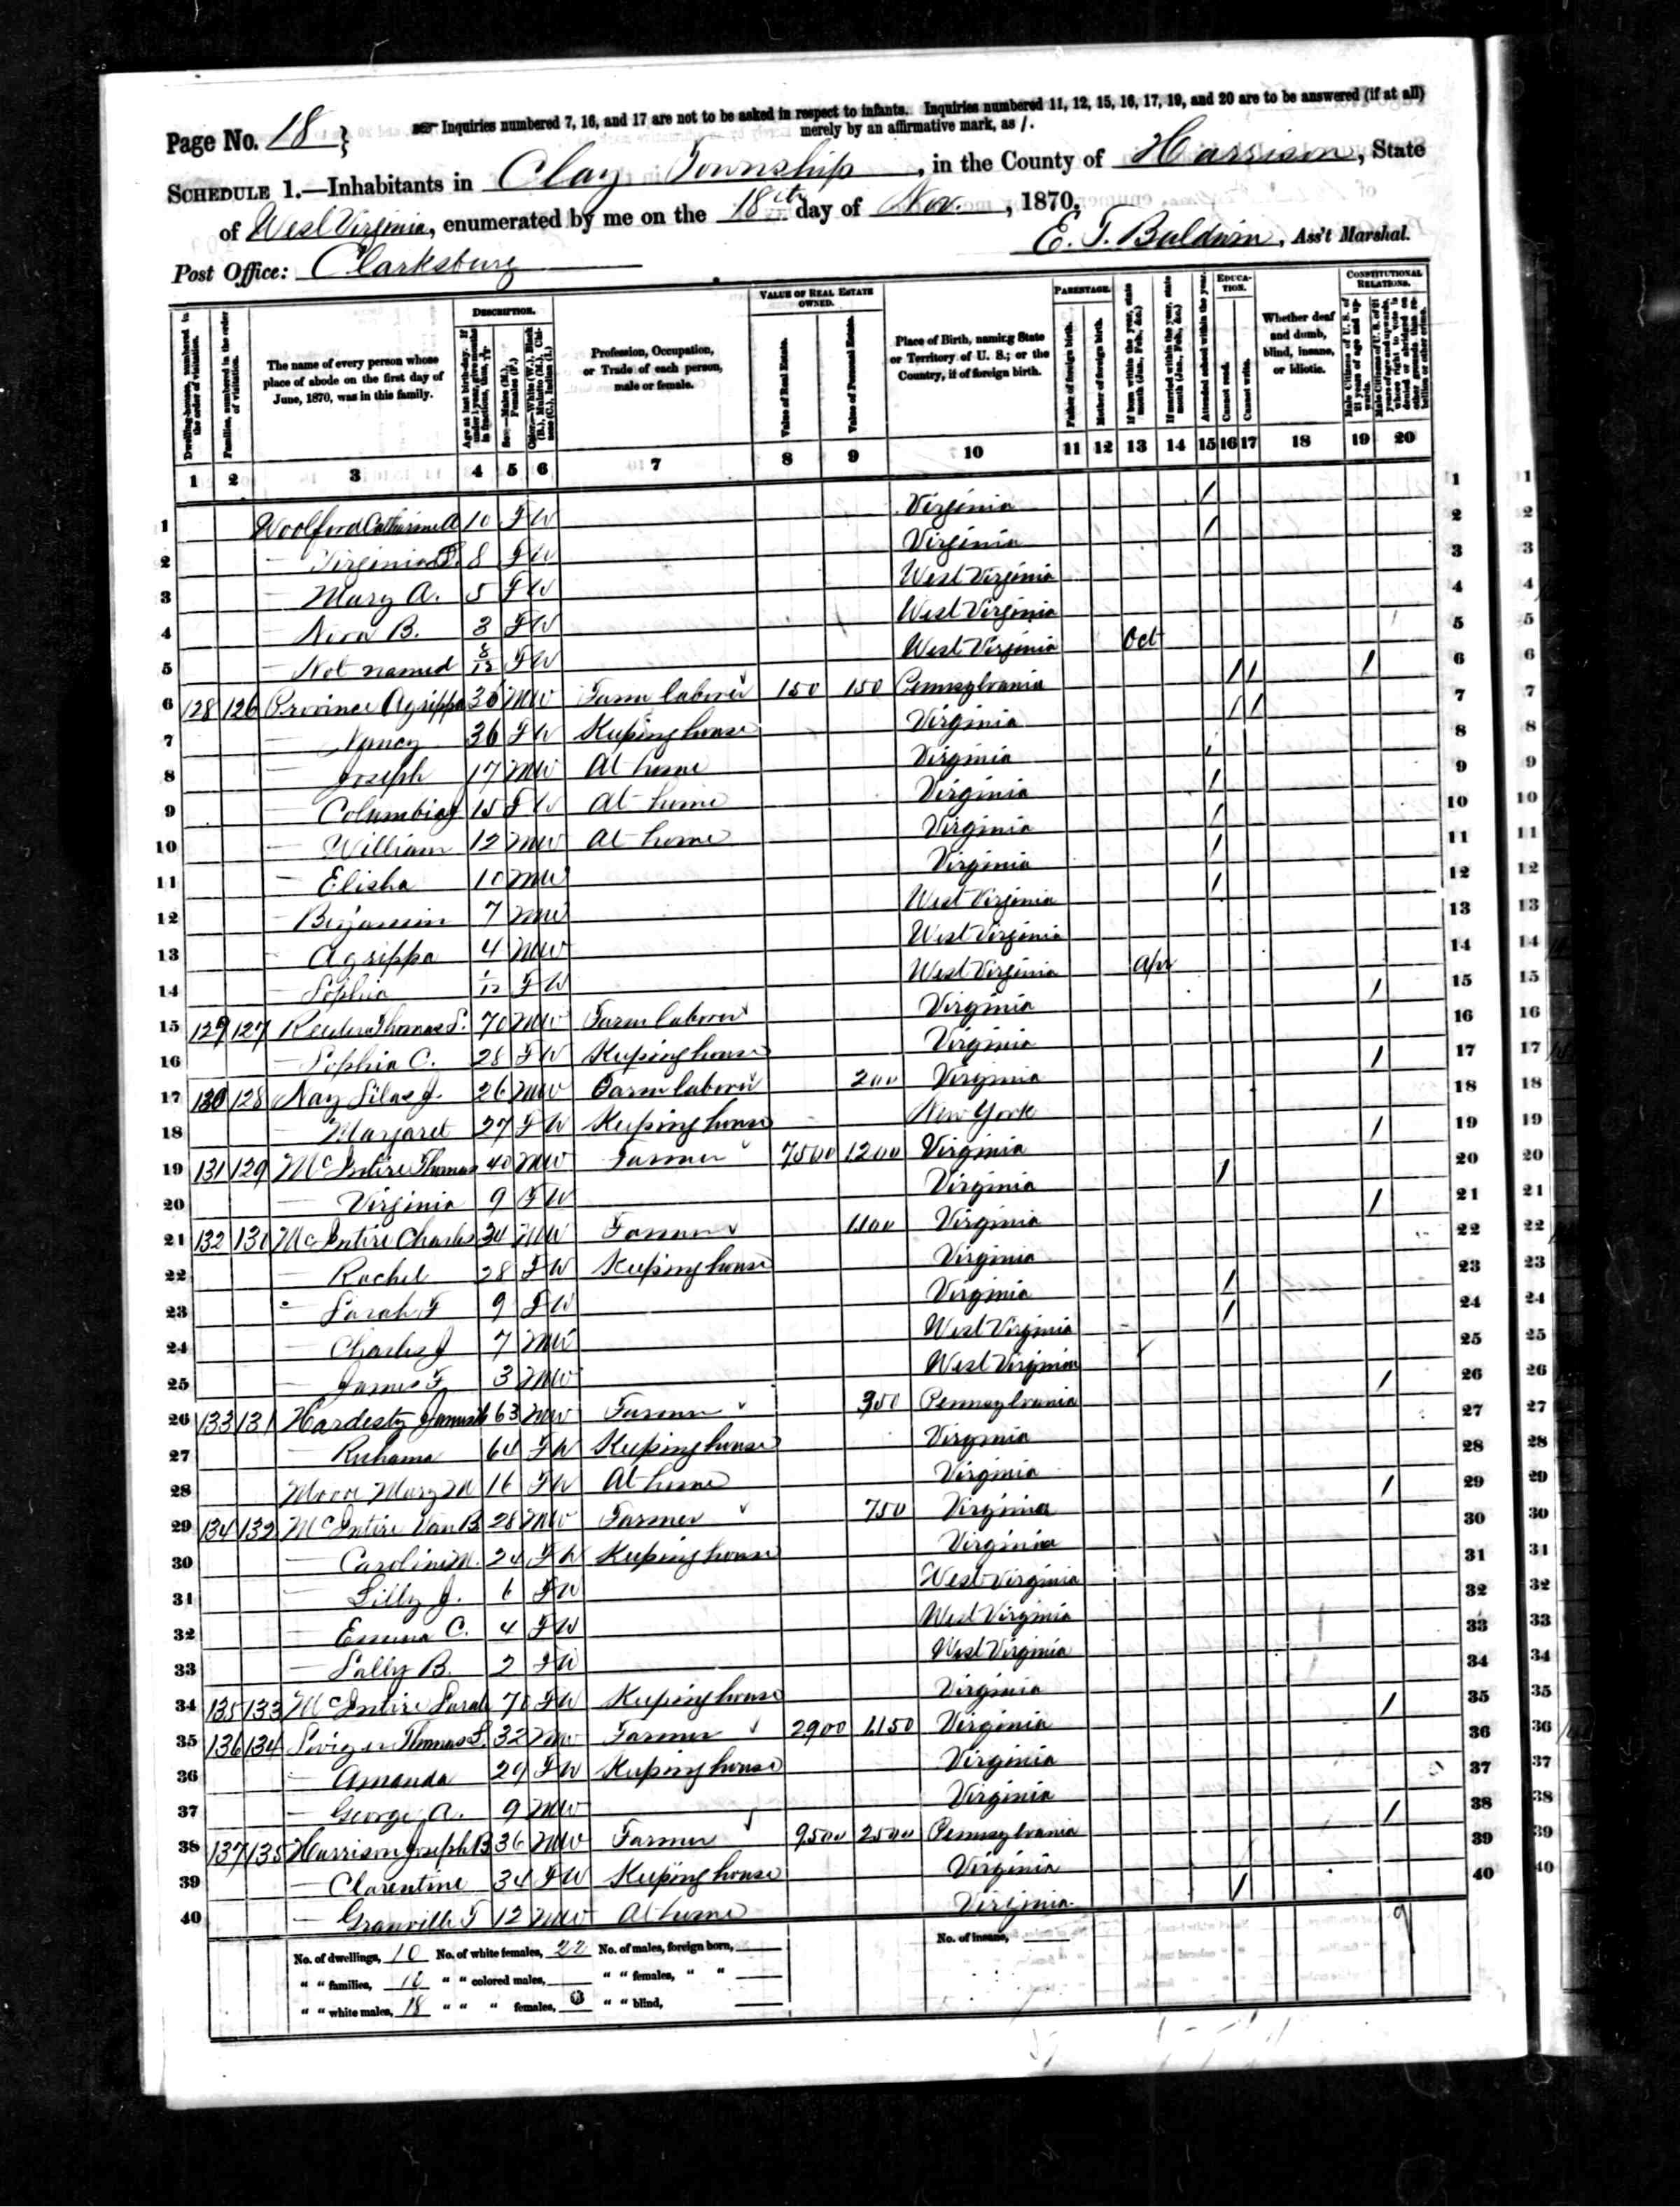 Page No. 18 } Inquiries numbered 7, 16, and 17 are not to be asked in respect to infants. Inquiries numbered 11, 12, 15, 16, 17, 19, and 20 are to be answered (if at all)
merely by an affirmative mark, as /.
SCHEDULE 1.—Inhabitants in Clay Township, in the County of Harrison, State
of West Virginia, enumerated by me on the 18th day of Nov., 1870.
Post Office: Clarksburg
E. T. Baldwin, Ass't Marshal.
Dwelling-houses, numbered in the order of visitation.
Families, numbered in the order of visitation.
The name of every person whose place of abode on the first day of June, 1870, was in this family.
DESCRIPTION.
Age at last birth-day. If under 1 year, give months in fractions, thus, 3/12
Sex.—Males (M.), Females (F.)
Color.—White (W.), Black (B.), Mulatto (M.), Chinese (C.), Indian (I.)
Profession, Occupation, or Trade of each person, male or female.
VALUE OF REAL ESTATE OWNED.
Value of Real Estate.
Value of Personal Estate.
Place of Birth, naming State or Territory of U. S.; or the Country, if of foreign birth.
PARENTAGE.
Father of foreign birth.
Mother of foreign birth.
If born within the year, state month (Jan., Feb., &c.)
If married within the year, state month (Jan., Feb., &c.)
Attended school within the year.
EDUCATION.
Cannot read.
Cannot write.
Whether deaf and dumb, blind, insane, or idiotic.
CONSTITUTIONAL RELATIONS.
Male Citizens of U. S. of 21 years of age and upwards.
Male Citizens of U. S. of 21 years of age and upwards, whose right to vote is denied or abridged on other grounds than rebellion or other crime.
1 2 3 4 5 6 7 8 9 10 11 12 13 14 15 16 17 18 19 20
1 Woolford Catharine A 10 F W Virginia / 1
2 — Virginia 8 F W Virginia / 2
3 — Mary A. 5 F W West Virginia 3
4 — Nira B. 3 F W West Virginia 4
5 — Not named 8/12 F W West Virginia Oct 5
6 128 126 Province Agrippa 36 M W Farm laborer 150 150 Pennsylvania / / / 6
7 — Nancy 36 F W Keeping house Virginia / / 7
8 — Joseph 17 M W At home Virginia / 8
9 — Columbia J 15 F W At home Virginia / 9
10 — William 12 M W At home Virginia / 10
11 — Elisha 10 M W Virginia / 11
12 — Benjamin 7 M W West Virginia / 12
13 — Agrippa 4 M W West Virginia 13
14 — Sophia 1/12 F W West Virginia Apr 14
15 129 127 Reeder Thomas S. 70 M W Farm laborer Virginia / 15
16 — Sophia C. 28 F W Keeping house Virginia 16
17 130 128 Nay Silas J. 26 M W Farm laborer 200 Virginia / 17
18 — Margaret 27 F W Keeping house New York 18
19 131 129 McIntire Thomas 40 M W Farmer 7500 1200 Virginia / 19
20 — Virginia 9 F W Virginia / 20
21 132 130 McIntire Charles 34 M W Farmer 1100 Virginia / 21
22 — Rachel 28 F W Keeping house Virginia 22
23 — Sarah F 9 F W Virginia / 23
24 — Charles J 7 M W West Virginia / 24
25 — James F 3 M W West Virginia 25
26 133 131 Hardesty James 63 M W Farmer 350 Pennsylvania / 26
27 — Ruhama 64 F W Keeping house Virginia 27
28 Moor Mary M 16 F W At home Virginia 28
29 134 132 McIntire Van B 28 M W Farmer 750 Virginia / 29
30 — Caroline M. 24 F W Keeping house Virginia 30
31 — Lilly J. 6 F W West Virginia 31
32 — Emma C. 4 F W West Virginia 32
33 — Sally B. 2 F W West Virginia 33
34 135 133 McIntire Sarah 70 F W Keeping house Virginia 34
35 136 134 Swiger Thomas S. 32 M W Farmer 2900 1150 Virginia / 35
36 — Amanda 29 F W Keeping house Virginia 36
37 — George A. 9 M W Virginia 37
38 137 135 Harrison Joseph B 36 M W Farmer 9500 2500 Pennsylvania / 38
39 — Clarentine 34 F W Keeping house Virginia 39
40 — Granville T 12 M W At home Virginia / 40
No. of dwellings, 10 No. of white females, 22 No. of males, foreign born, No. of insane, 9
" " families, 10 " " colored males, " " females, " "
" " white males, 18 " " " females, 0 " " blind,